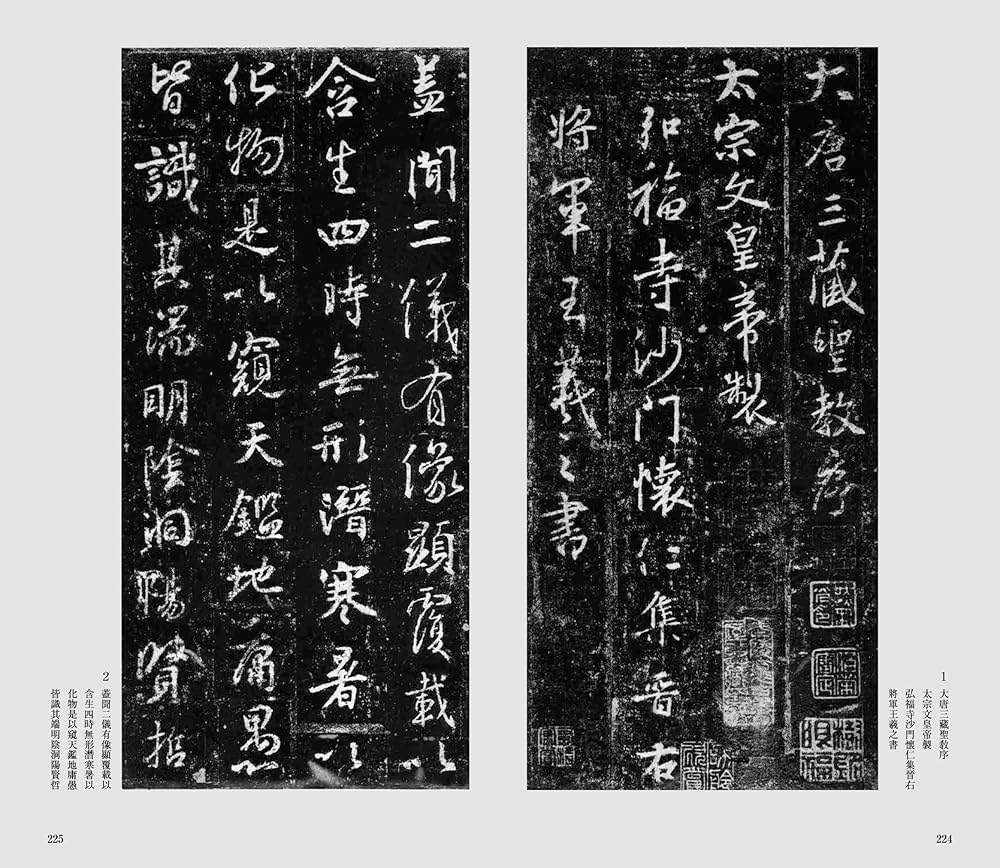 大唐三藏聖教序
太宗文皇帝製
弘福寺沙門懷仁集晉右
將軍王羲之書
1
大唐三藏聖教序
太宗文皇帝製
弘福寺沙門懷仁集晉右
將軍王羲之書
224
蓋聞二儀有像顯覆載以
含生四時無形潛寒暑以
化物是以窺天鑑地庸愚
皆識其端明陰洞陽賢哲
2
蓋聞二儀有像顯覆載以
含生四時無形潛寒暑以
化物是以窺天鑑地庸愚
皆識其端明陰洞陽賢哲
225